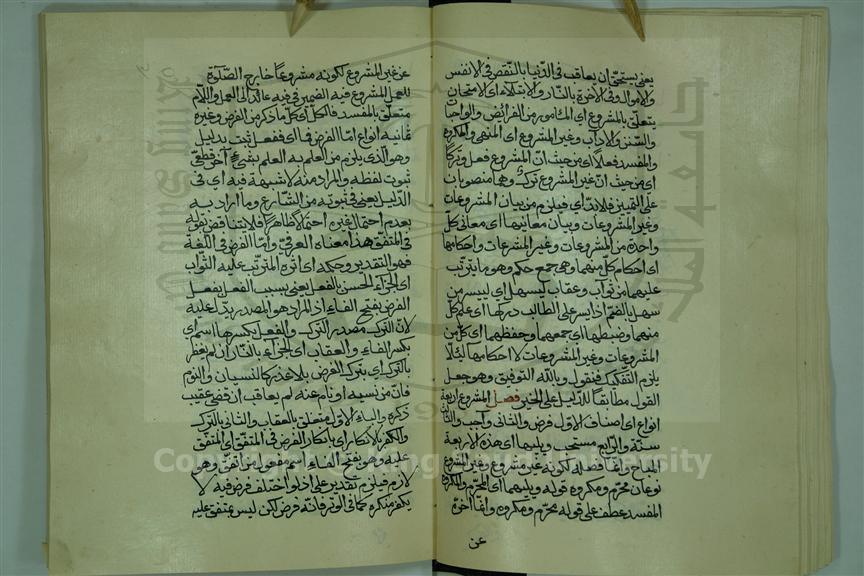 يعنى يستحق ان يعاقب فى الدنيا بالنقص فى الانفس
والاموال وفى الآخرة بالنار والابتلاء اى الامتحان
يتعلق بالمشروع اى المأمور من الفرائض والواجبات
والسنن والآداب وغير المشروع اى المنهى والمكروه
والمفسد فعلا اى من حيث ان المشروع فعل وتركا
اى من حيث ان غير المشروع ترك وهما منصوبان
على التمييز فلا بد اى فيلزم من بيان المشروعات
وغير المشروعات وبيان معانيهما اى معانى كل
واحدة من المشروعات وغير المشروعات واحكامهما
اى احكام كل منهما وهى جمع حكم وهو ما يترتب
عليهما من ثواب وعقاب ليسهل اى لييسر من
سهل بالضم اذا يسر على الطالب دركها اى علم كل
منهما وضبطها اى جمعهما وحفظهما اى كل من
المشروعات وغير المشروعات لا احكامها لئلا
يلزم التفكيك فنقول وبالله التوفيق وهو جعل
القول مطابقا للدليل على الخير فصل المشروع اربعة
انواع اى اصناف الاول فرض والثانى واجب والثالث
سنة والرابع مستحب ويليها اى هذه الاربعة
المباح وانما فصله لكونه غير مشروع وغير المشروع
نوعان محرم ومكروه قوله ويليهما اى المحرم والمكروه
المفسد عطف على قوله محرم ومكروه وانما اخره
عن
عن غير المشروع لكونه مشروعا خارج الصلوة
للعمل المشروع فيه الضمير فى فيه عائد الى العمل واللام
متعلق بالمفسد فالكل اى كل ما ذكر من الفرض وغيره
ثمانية انواع اما الفرض فما اى ففعل ثبت بدليل
وهو الذى يلزم من العلم به العلم بشئ آخر قطعى
ثبوت لفظه والمراد منه لا شبهة فيه اى فى
الدليل يعنى فى ثبوته من الشارع وما اراد به
بعدم احتمال غيره احتمالا ظاهرا فلا يتناقض بقوله
فى المتفق هذا معناه العرفى واما الفرض فى اللغة
فهو التقدير وحكمه اى اثره المترتب عليه الثواب
اى الجزاء الحسن بالفعل يعنى بسبب الفعل بفعل
الفرض بفتح الفاء اذ المراد هو المصدر يدل عليه
لان الترك مصدر الترك والفعل بكسرها اسم اى
بكسر الفاء والعقاب اى الجزاء بالنار ان لم يغفر
بالترك اى بترك الفرض بلا عذر كالنسيان والنوم
فان من نسيه او نام عنه لم يعاقب ان قضى عقيب
ذكره والباء الاول متعلق بالعقاب والثانى بالترك
والكفر بالانكار اى بانكار الفرض فى المتفق اى المتفق
عليه وهو بفتح الفاء اسم مفعول من اتفق وهو
لازم فيلزم تقدير على اذ لو اختلف فرضيه لا
يكفر منكره كما فى الوتر فانه فرض لكن ليس بمتفق عليه
Copyright © King Saud University